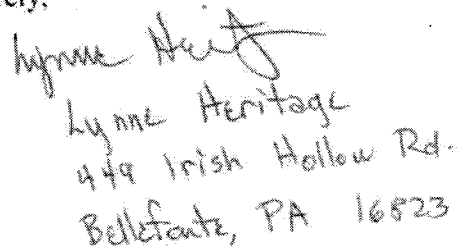 ely,
Lynne Herit
Lynne Heritage
449 Irish Hollow Rd.
Bellefonte, PA 16823